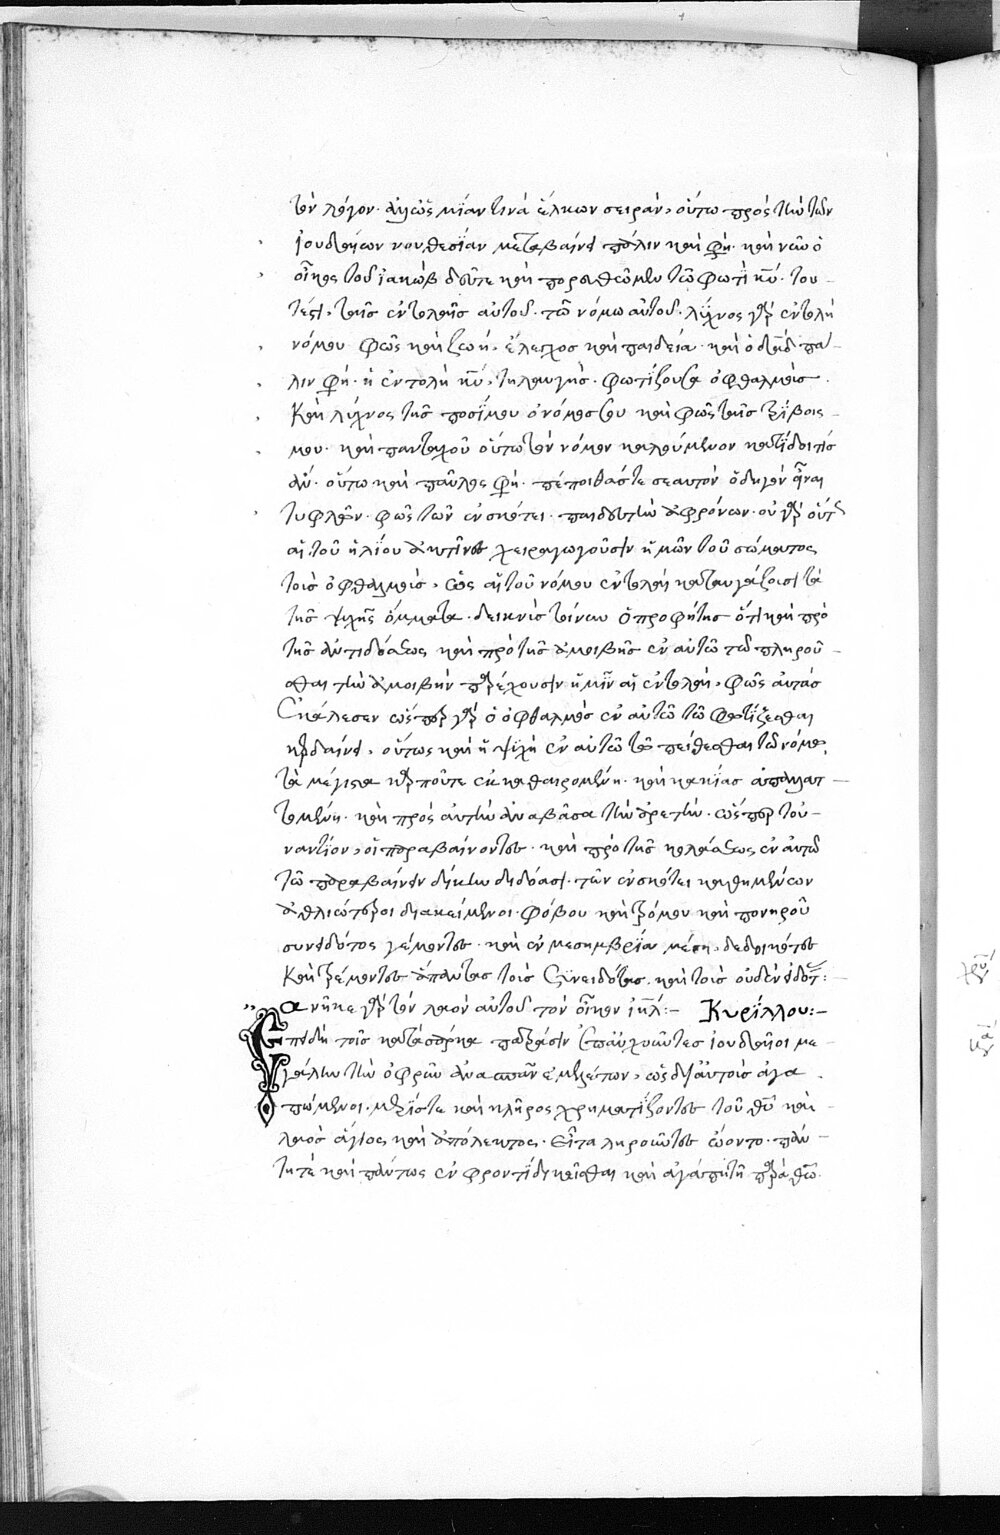 τὸν λόγον· ἀλλ' ὡς μίαν τινὰ ἕλκων σειρὰν, οὕτω πρὸς τὴν τῶν
ἰουδαίων νουθεσίαν μεταβαίνει πάλιν καὶ φη· καὶ νῦν ὁ
οἶκος τοῦ ἰακὼβ δεῦτε καὶ πορευθῶμεν τῶ φωτὶ κυ· του
τέστι, ταῖς ἐντολαῖς αὐτοῦ· τῶ νόμω αὐτοῦ· λύχνος γὰρ ἐντολὴ
νόμου· φῶς καὶ ζωὴ, ἔλεγχος καὶ παιδεία· καὶ ὁ δαδ πά
λιν φη· ἡ ἐντολὴ κυ, τηλαυγὴς· φωτίζουσα ὀφθαλμοὺς
Καὶ λύχνος τοῖς ποσί μου ὁ νόμος σου καὶ φῶς ταῖς τρίβοις
μου· καὶ πανταχοῦ οὕτω τὸν νόμον καλούμενον κατίδοι τίς
ἂν· οὕτω καὶ παῦλος φη· πέποιθάς τε σεαυτὸν ὁδηγὸν εἶναι
τυφλῶν· φῶς τῶν ἐν σκότει· παιδευτὴν ἀφρόνων· οὐ γὰρ οὕτ
αἱ τοῦ ἡλίου ἀκτῖνες χειραγωγοῦσιν ἡμῶν τοῦ σώματος
τοὺς ὀφθαλμοὺς, ὡς αἱ τοῦ νόμου ἐντολαὶ καταυγάζουσι τὰ
τῆς ψυχῆς ὄμματα· δεικνὺς τοίνυν ὁ προφήτης ὅτι καὶ πρὸ
τῆς ἀντιδόσεως καὶ πρὸ τῆς ἀμοιβῆς ἐν αὐτῶ τῶ πληροῦ
σθαι τὴν ἀμοιβὴν παρέχουσιν ἡμῖν αἱ ἐντολαὶ, φῶς αὐτὰς
ἐκάλεσεν ὥσπερ γὰρ ὁ ὀφθαλμὸς ἐν αὐτῶ τῶ φωτίζεσθαι
κερδαίνει, οὕτως καὶ ἡ ψυχὴ ἐν αὐτῶ τῶ πείθεσθαι τῶ νόμω
τὰ μέγιστα καρποῦται ἐκκαθαιρομένη· καὶ κακίας ἀπαλλατ
τομένη· καὶ πρὸς αὐτὴν ἀναβᾶσα τὴν ἀρετὴν· ὥσπερ τοὐ
ναντίον, οἱ παραβαίνοντες· καὶ πρὸ τῆς κολάσεως ἐν αὐτῶ
τῶ παραβαίνειν δίκην διδόασι· τῶν ἐν σκότει καθημένων
ἀθλιώτεροι διακείμενοι· φόβου καὶ τρόμου καὶ πονηροῦ
συνειδότος γέμοντες· καὶ ἐν μεσημβρία μέση, δεδοικότες
Καὶ τρέμοντες ἅπαντας τοὺς συνειδότας, καὶ τοὺς οὐδὲν εἰδότ:
ανῆκε γὰρ τὸν λαὸν αὐτοῦ τὸν οἶκον ιηλ:– Κυρίλλου:–
Ἐπειδὴ τοῖς κατὰ σάρκα πατράσιν ἐπαυχοῦντες ἰουδαῖοι με
γάλην τὴν ὀφρῦν
πώμενοι· μερίς τε καὶ κλῆρος χρηματίζοντες τοῦ θυ καὶ
λαὸς ἅγιος καὶ ἀπόλεκτος· εἶτα ληροῦντες ὤοντο· πάν
τη τε καὶ πάντως ἐν φροντίδι κεῖσθαι καὶ